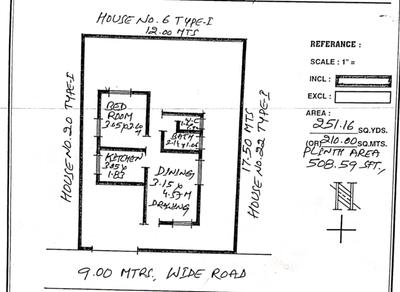 HOUSE No. 6 TYPE-I
12.00 MTS
HOUSE No. 20 TYPE-I
BED
ROOM
KITCHEN
1.83
W.C
BATH
DINING
3.15 x
DRAWING
17.50 MTS
HOUSE No. 22 TYPE-I
9.00 MTRS, WIDE ROAD
REFERANCE :
SCALE : 1" =
INCL :
EXCL :
AREA :
251.16 SQ.YDS.
(OR) 210.00 SQ.MTS.
PLINTH AREA
508.59 SFT.,
N